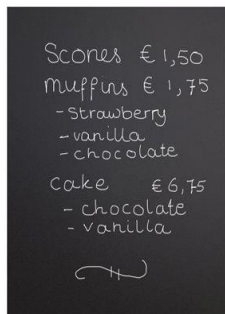 Scones € 1,50
muffins € 1,75
- strawberry
- vanilla
- chocolate
cake € 6,75
- chocolate
- vanilla